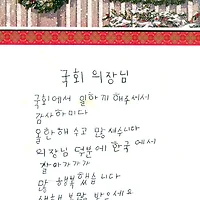 국회 의장님
국회에서 일하끼 해주셔서
감사하미다
올 한해 수고 많셔습니다
의장님 덕분에 한국에서
살아가가가
많 행복했습니다
새해 복 많 받으세요